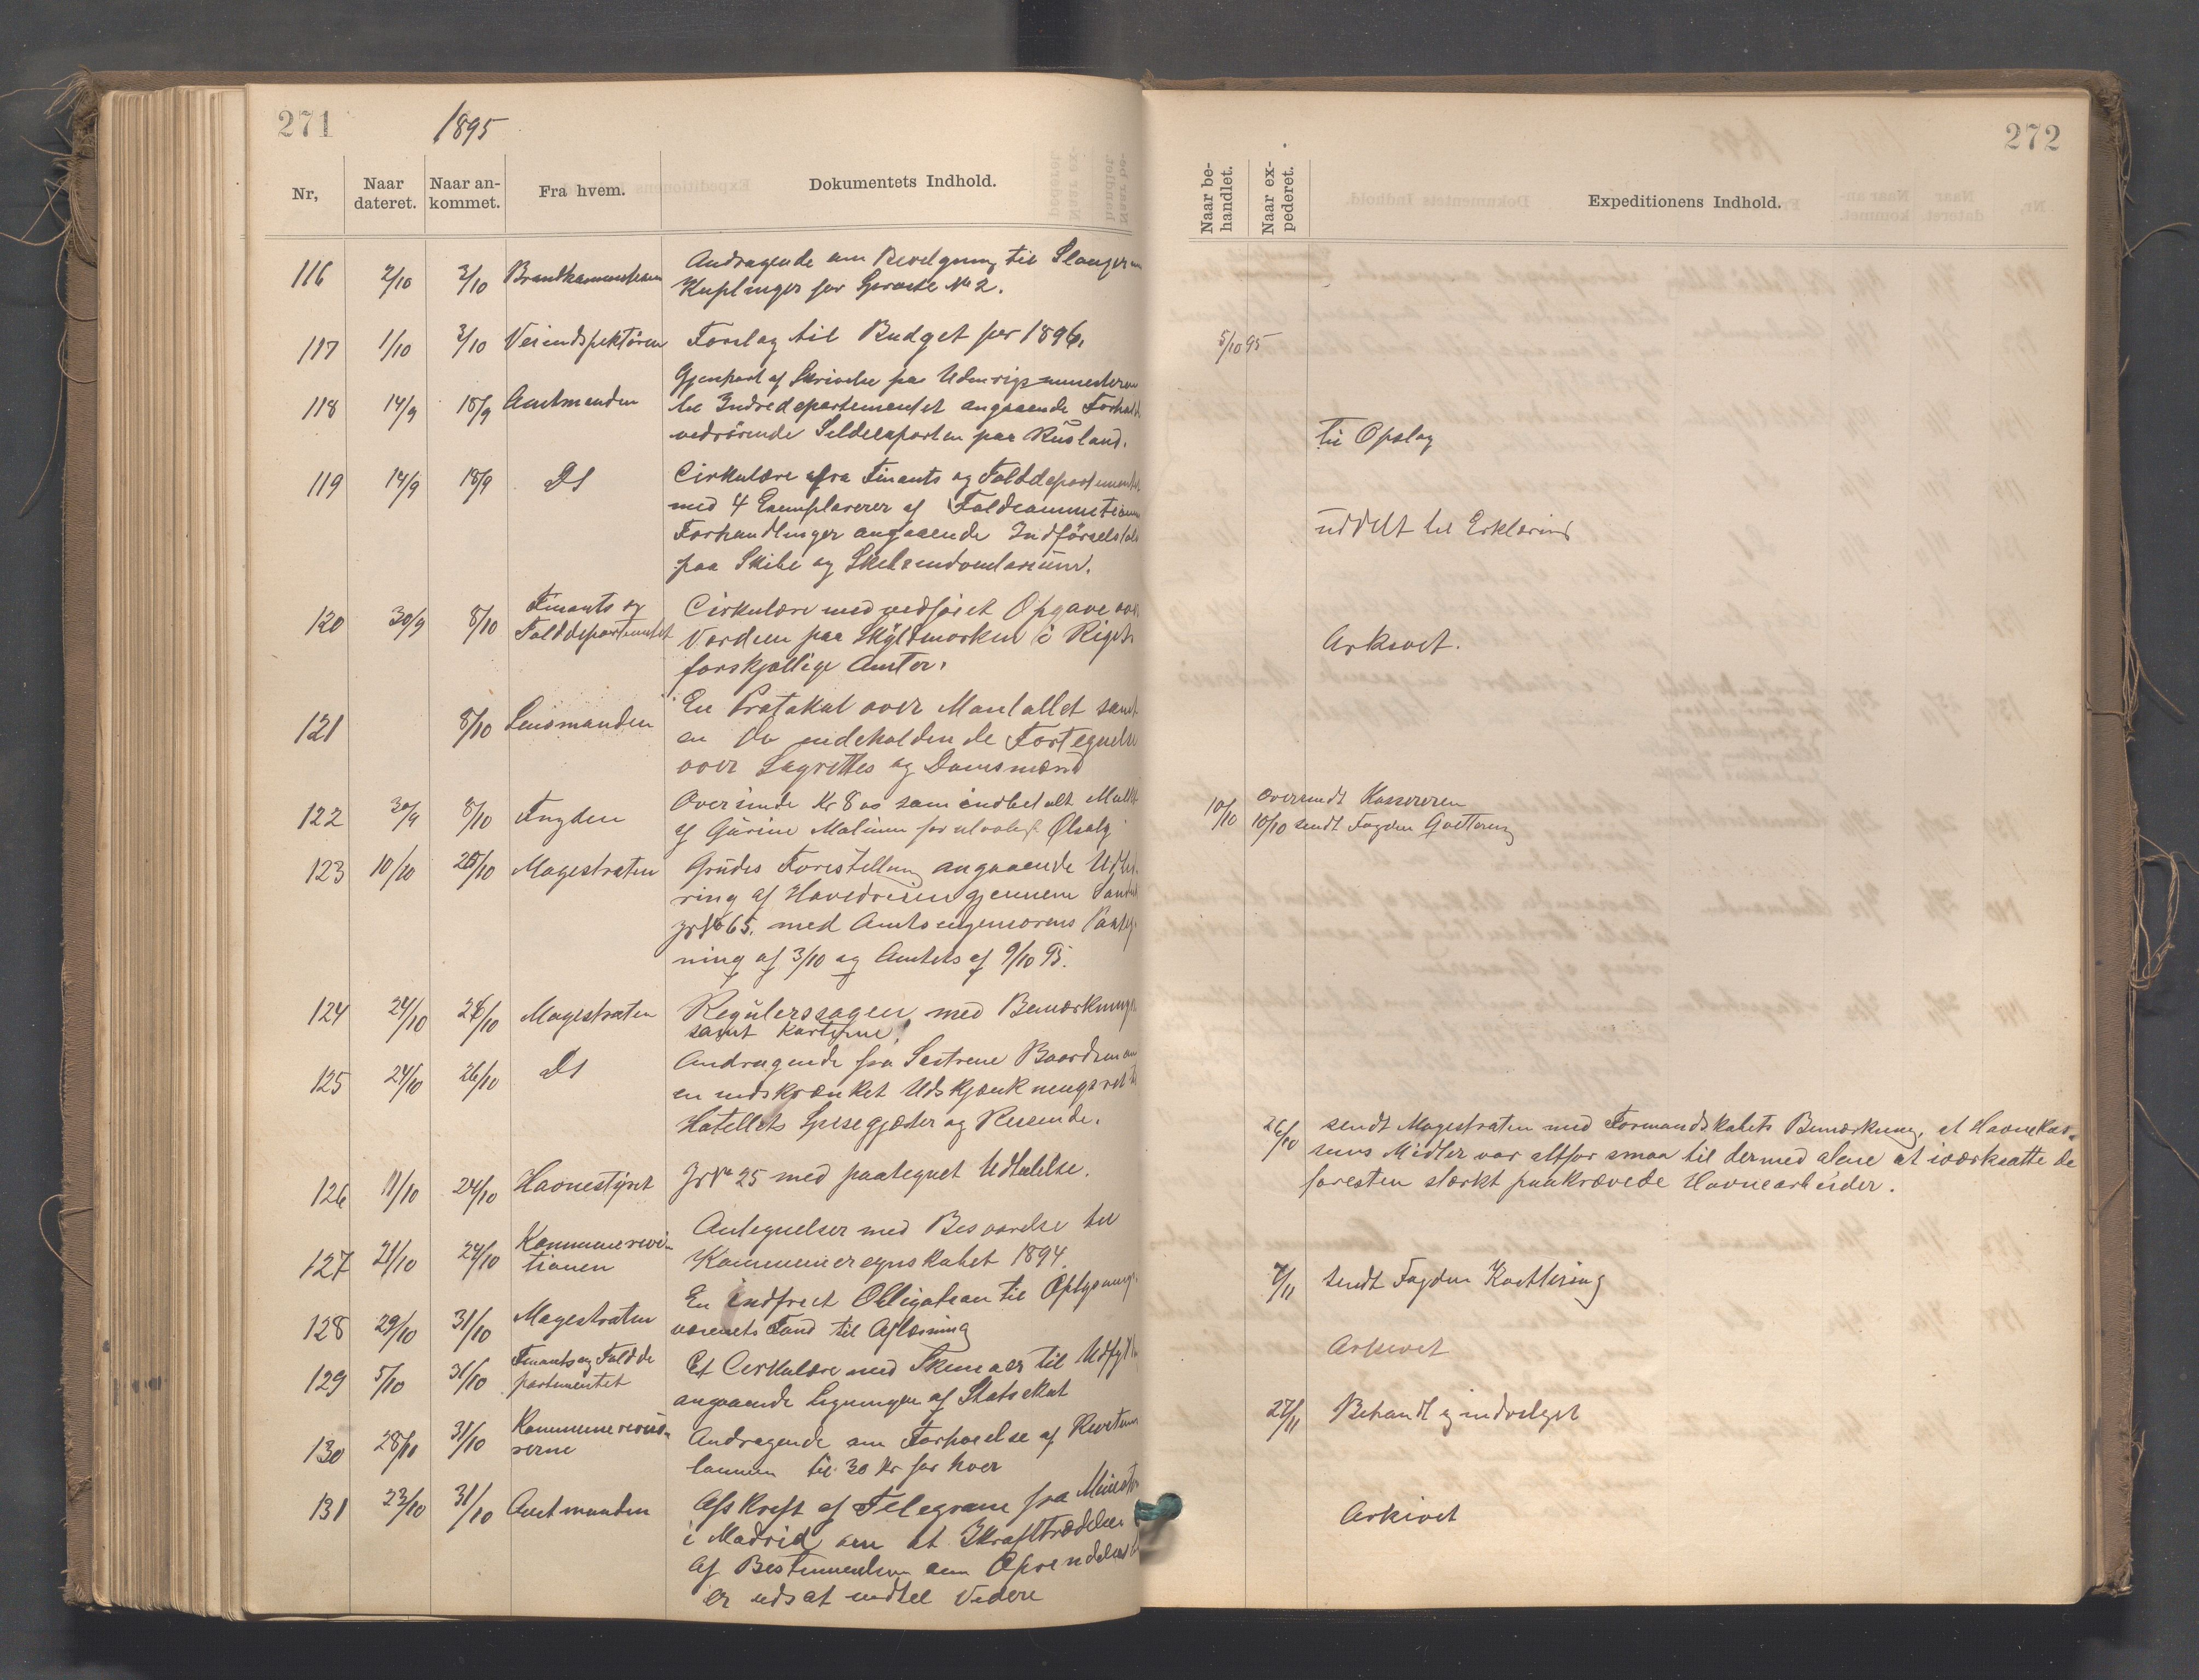 271
1895
Nr, Naar dateret. Naar ankommet. Fra hvem. Dokumentets Indhold.
116 2/10 3/10 Andragende om Bevilgning til Slanger
Kuplinger for Sprøite No 2.
117 1/10 3/10 Veiindspektøren Forslag til Budget for 1896.
118 14/9 18/9 Amtmanden Gjenpart af Skrivelse fra
til Indredepartementet angaaende
vedrørende Sildeexporten paa Rusland.
119 14/9 18/9 Do Cirkulære fra Finants og Tolddepartementet
med 4 Exemplarer af
Forhandlinger angaaende
paa Skibe og
120 30/9 8/10 Finants og Tolddepartementet Cirkulære med vedføiet Opgave over
Værdien paa Skyldmarken i Rigets
forskjællige Amter.
121 8/10 Lensmanden En Protokol over Mantallet samt
en Do indeholdende Fortegnelse
over Lagrettes og Domsmænd
122 30/9 8/10 Fogden Oversende Kr 8 00 som indbetalt Mulkt
af Gurine Malinen for ulovligt Ølsalg
123 10/10 25/10 Magestraten Grudes Forestilling angaaende
ring af Hovedveien gjennem
JrNo 65. med Amtsingeniørens
ning af 3/10 og Amtets af 9/10 95.
124 24/10 26/10 Magestraten Regulerssagen med Bemærkninger
samt Karterne!
125 24/10 26/10 Do Andragende fra Søstrene
en indskrænket Udskjænkningsret til
Hotellets Spisegjæster og Reisende.
126 11/10 24/10 Havnestyret JrNo 25 med paategnet Udtalelse.
127 21/10 24/10 Kommunerevitionen Antegnelser med Besvarelse til
Kommuneregnskabet 1894.
128 29/10 31/10 Magestraten En indfriet Obligation til Oplysnings
væsenets Fond til Aflæsning
129 5/10 31/10 Finants og Tolddepartementet Et Cirkulære med Skemaer til
angaaende Ligningen af Statsskat
130 28/10 31/10 Kommunerevisorerne Andragende om Forhøielse af
lønnen til 30 Kr for hver
131 23/10 31/10 Amtmanden Afskrift af Telegram fra
i Madrid om at Ikrafttrædelsen
af Bestemmelsen om
er udsat indtil Videre
272
Naar behandlet. Naar expederet. Expeditionens Indhold.
5/10 95
til Opslag
uddelt til Erklæring
Arkivet.
10/10 oversendt Kassereren
10/10 sendt Fogden Qvittering
26/10 sendt Magestraten med Formandskabets Bemærkning, at Havnekas-
sens Midler var altfor smaa til dermed alene at iværksætte de
foresten stærkt paakrævede Havnearbeider.
7/11 Sendt Fogden Kvittering
Arkivet
27/11 Behandl ei indvilget
Arkivet